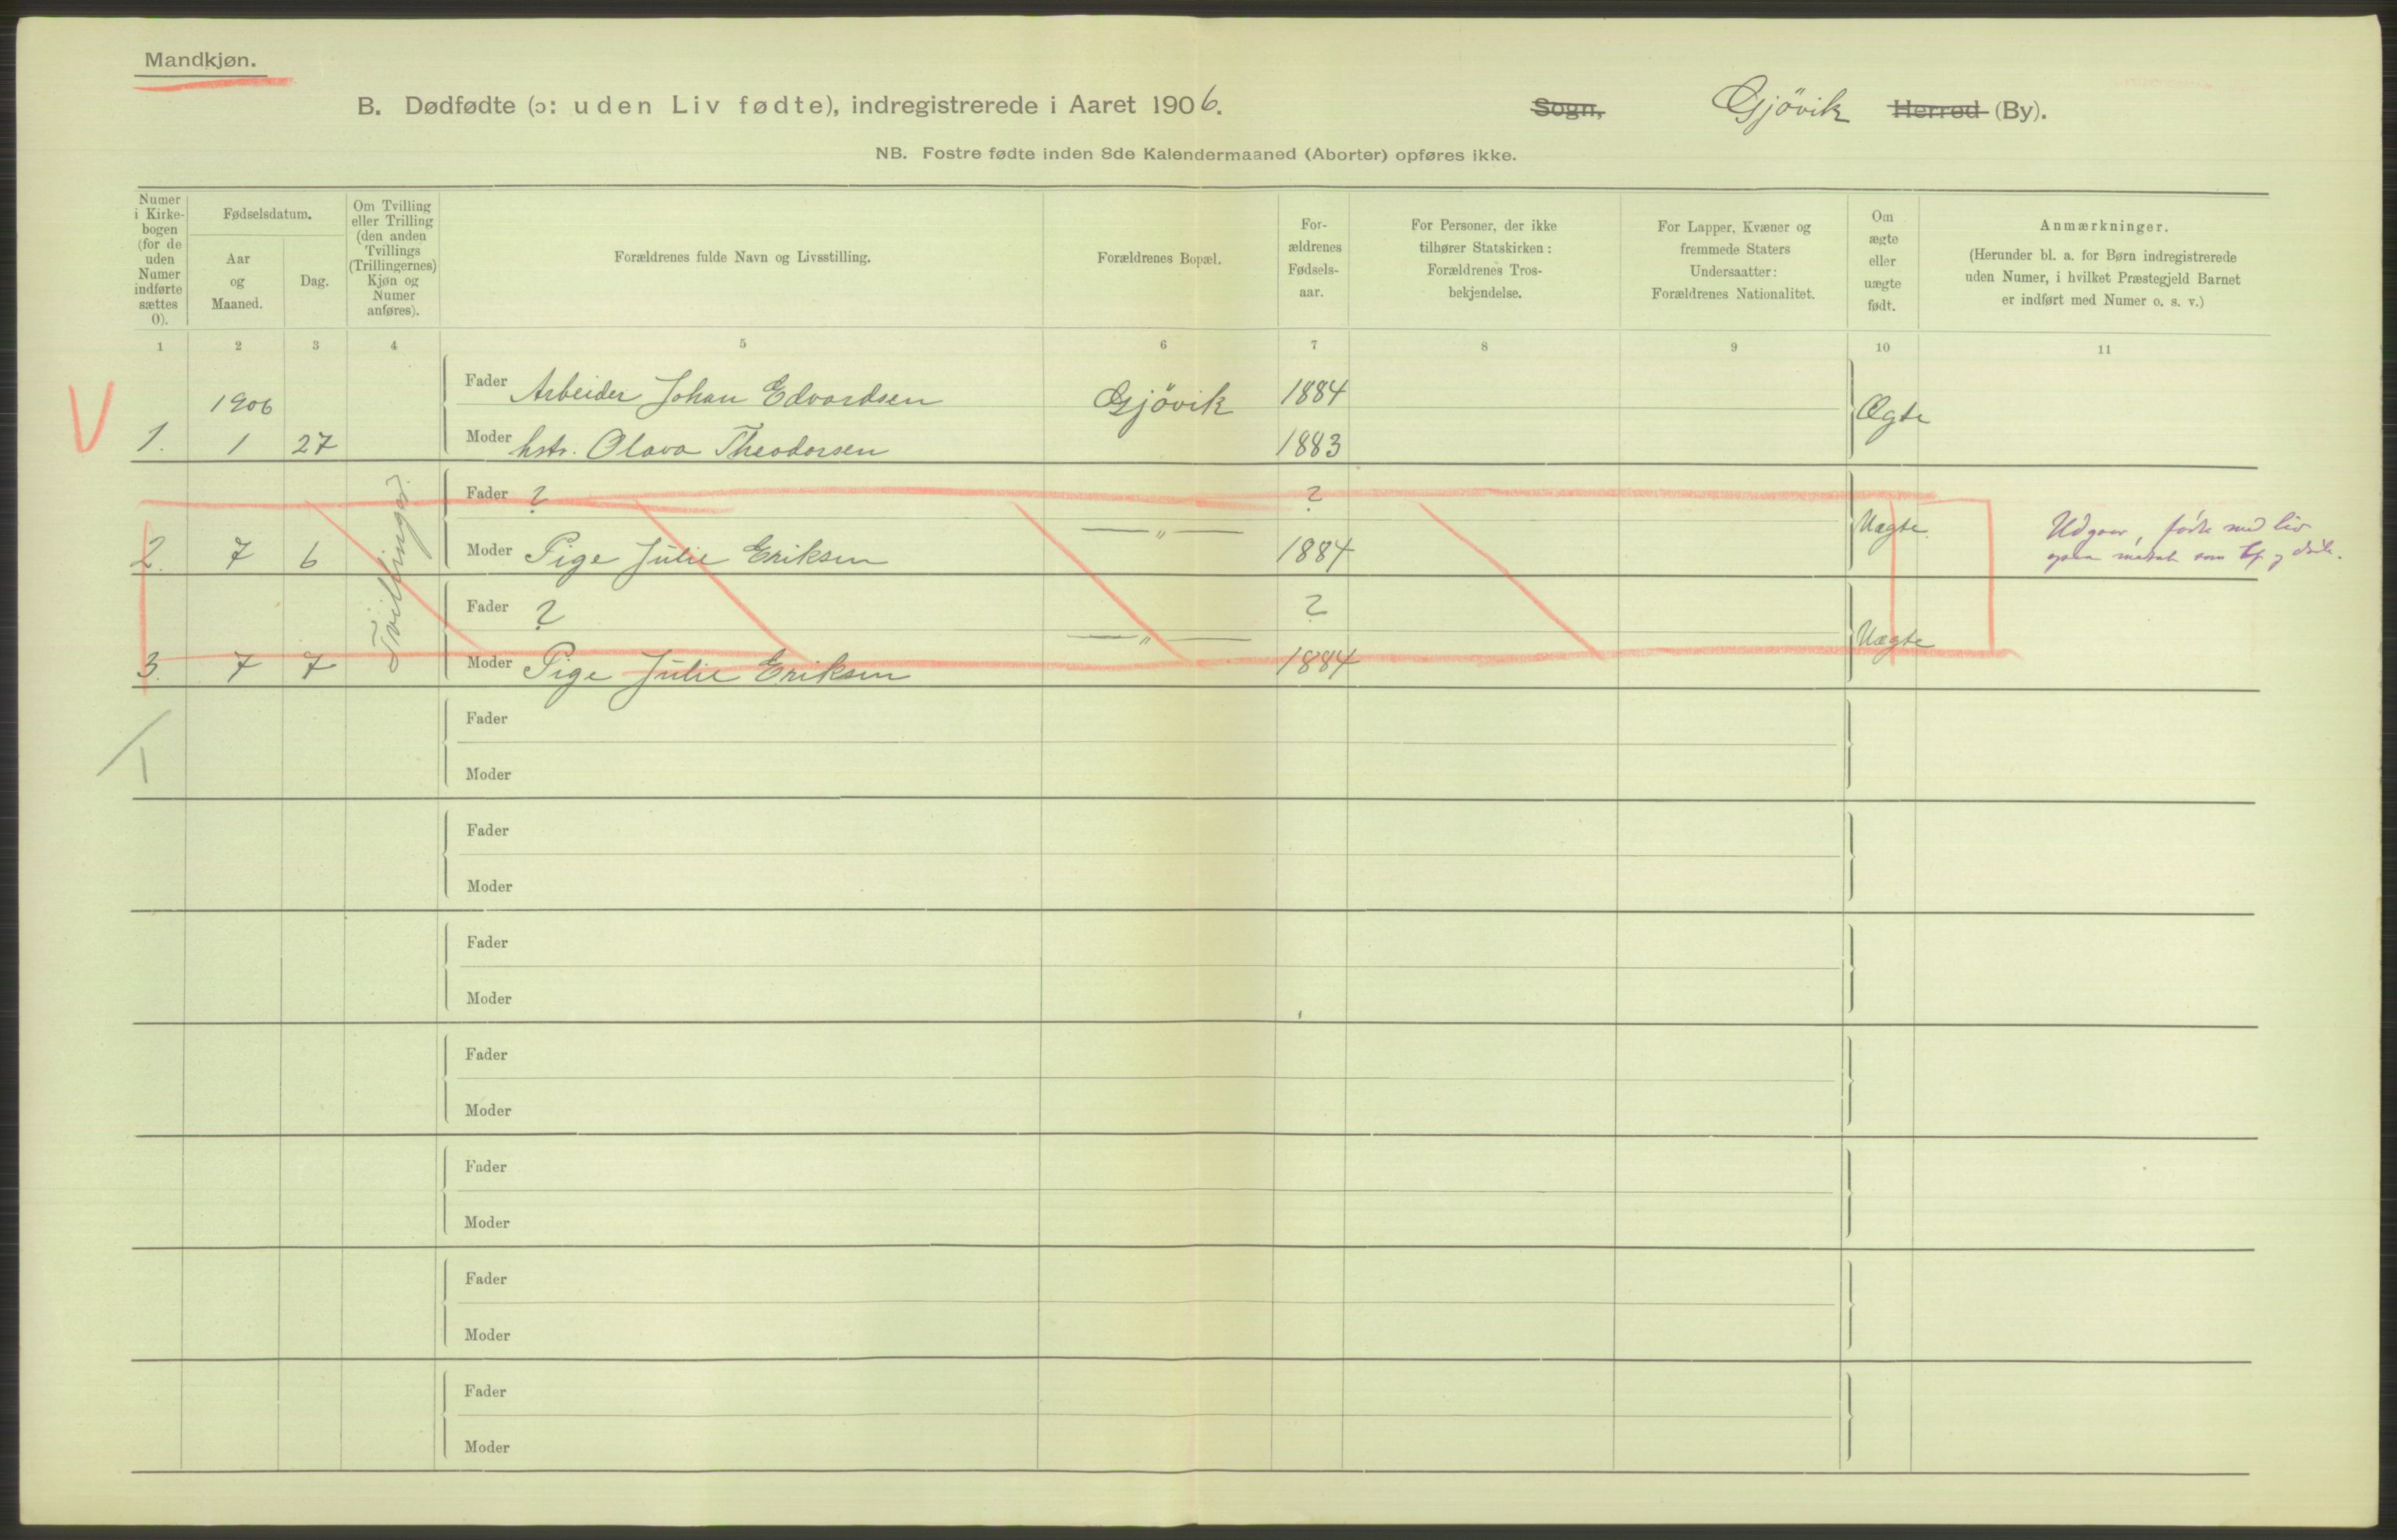 Mandkjøn.
B. Dødfødte (ɔ: uden Liv fødte), indregistrerede i Aaret 1906.
Sogn, Gjövik Herred (By).
NB. Fostre fødte inden 8de Kalendermaaned (Aborter) opføres ikke.
Numer
i Kirke-
bogen
(for de
uden
Numer
indførte
sættes
0).
Fødselsdatum.
Aar
og
Maaned.
Dag.
Om Tvilling
eller Trilling
(den anden
Tvillings
(Trillingernes)
Kjøn og
Numer
anføres).
Forældrenes fulde Navn og Livsstilling.
Forældrenes Bopæl.
For-
ældrenes
Fødsels-
aar.
For Personer, der ikke
tilhører Statskirken:
Forældrenes Tros-
bekjendelse.
For Lapper, Kvæner og
fremmede Staters
Undersaatter:
Forældrenes Nationalitet.
Om
ægte
eller
uægte
født.
Anmærkninger.
(Herunder bl. a. for Børn indregistrerede
uden Numer, i hvilket Præstegjeld Barnet
er indført med Numer o. s. v.)
1 2 3 4 5 6 7 8 9 10 11
V
1906
Fader Arbeider Johan Edvardsen Gjövik 1884 Ægte
1. 1 27 Moder hstr. Olava Theodorsen 1883
Tvillinger
Fader ? ?
2. 7 6 Moder Pige Julie Eriksen — „ — 1884 Uægte
Udgaar, födte med liv
som og
Fader ? ?
3. 7 7 Moder Pige Julie Eriksen — „ — 1884 Uægte
Fader
Moder
Fader
Moder
Fader
Moder
Fader
Moder
Fader
Moder
Fader
Moder
Fader
Moder